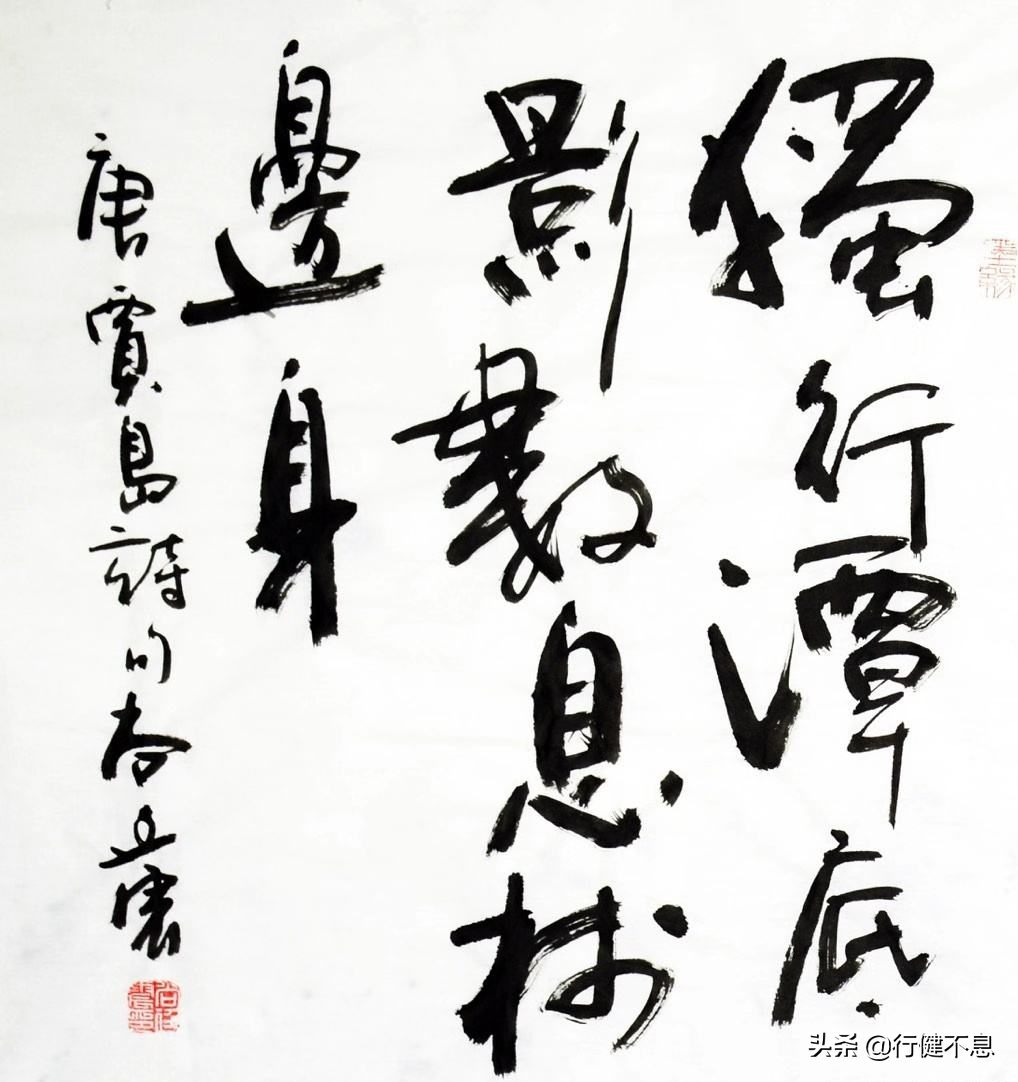 獨行潭底
影數息樹
邊身
唐賈島詩句
头条 @行健不息